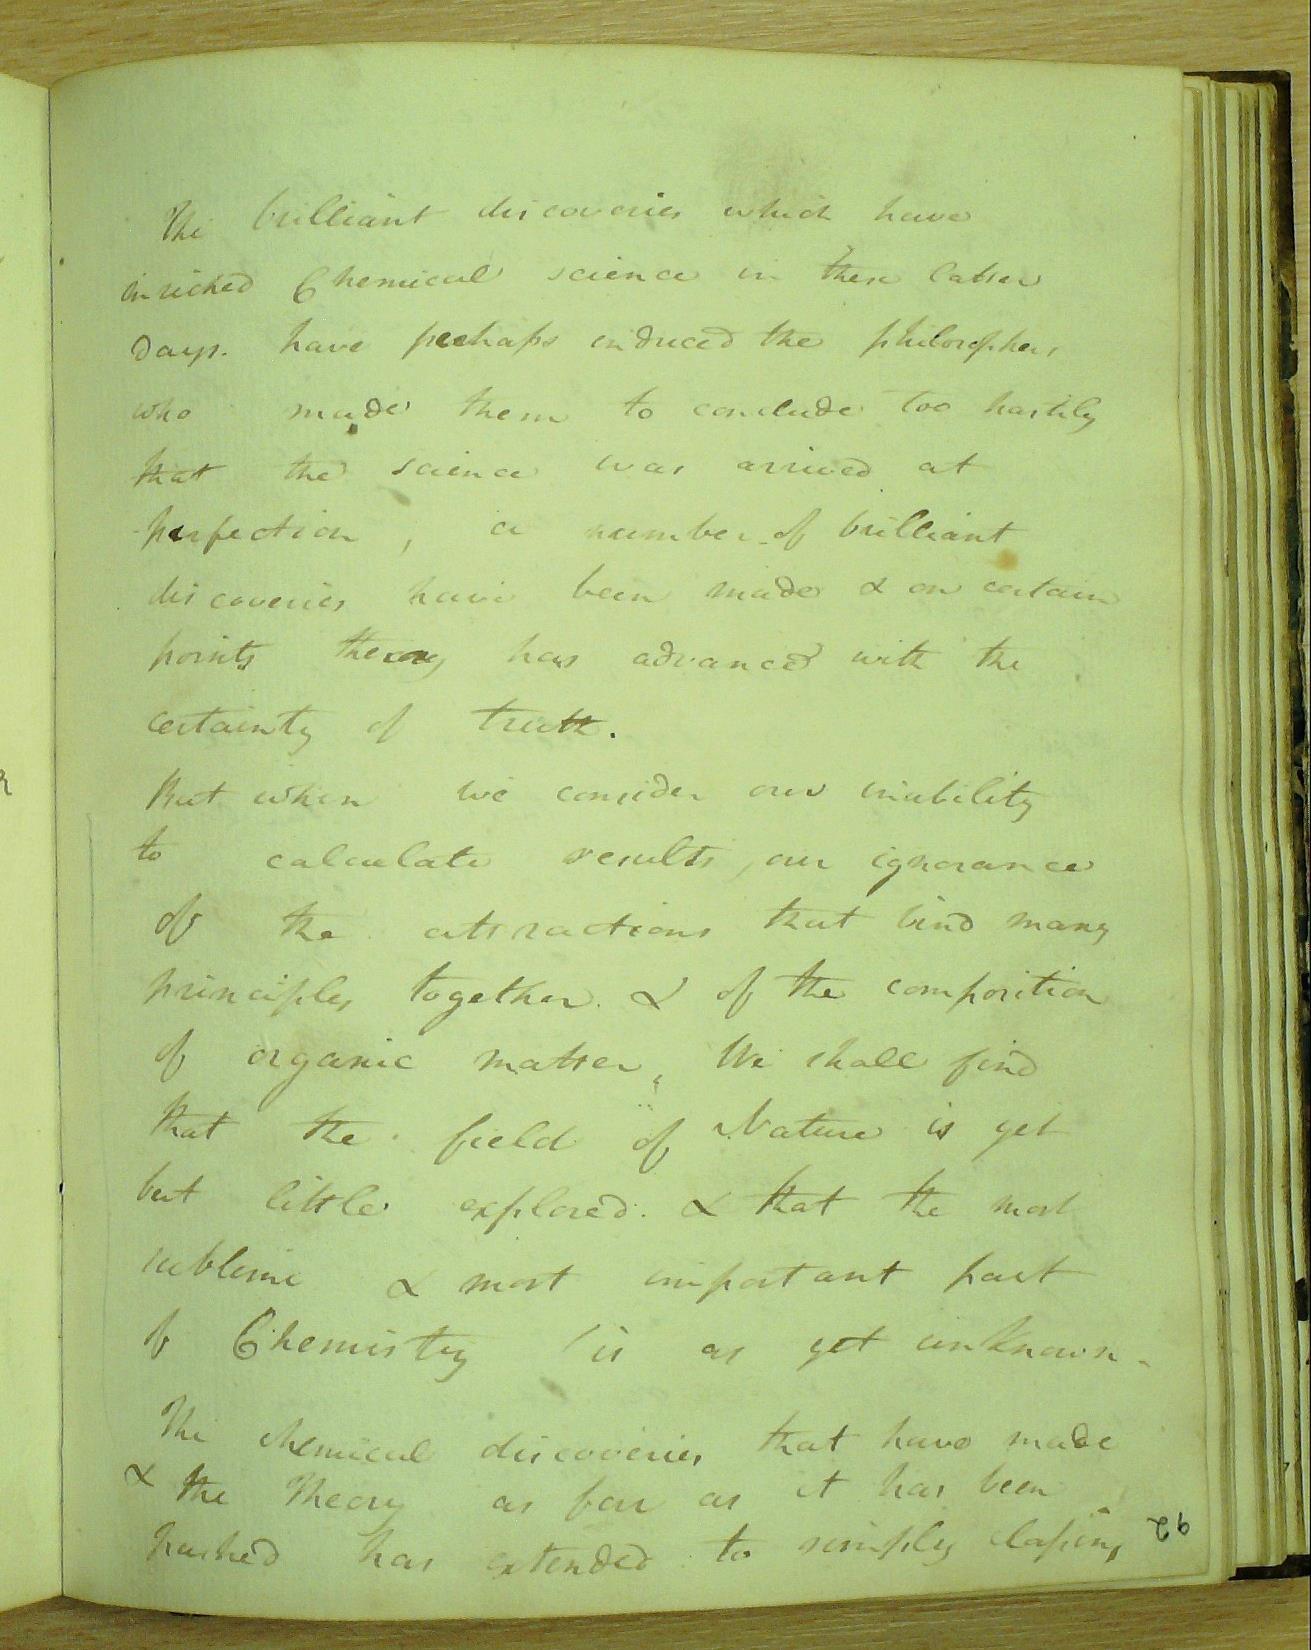 The brilliant discoveries which have
enriched Chemical science in these latter
days. have perhaps induced the philosophers
who made them to conclude too hastily
that the science was arrived at
perfection, a number of brilliant
discoveries have been made & on certain
points theory has advanced with the
certainty of truth.
But when we consider our inability
to calculate results, our ignorance
of the attractions that bind many
principles together. & of the composition
of organic matter, We shall find
that the field of Nature is yet
but little explored. & that the most
sublime & most important part
of Chemistry is as yet unknown.
The chemical discoveries that have made
& the Theory as far as it has been
pushed has extended to simply classing